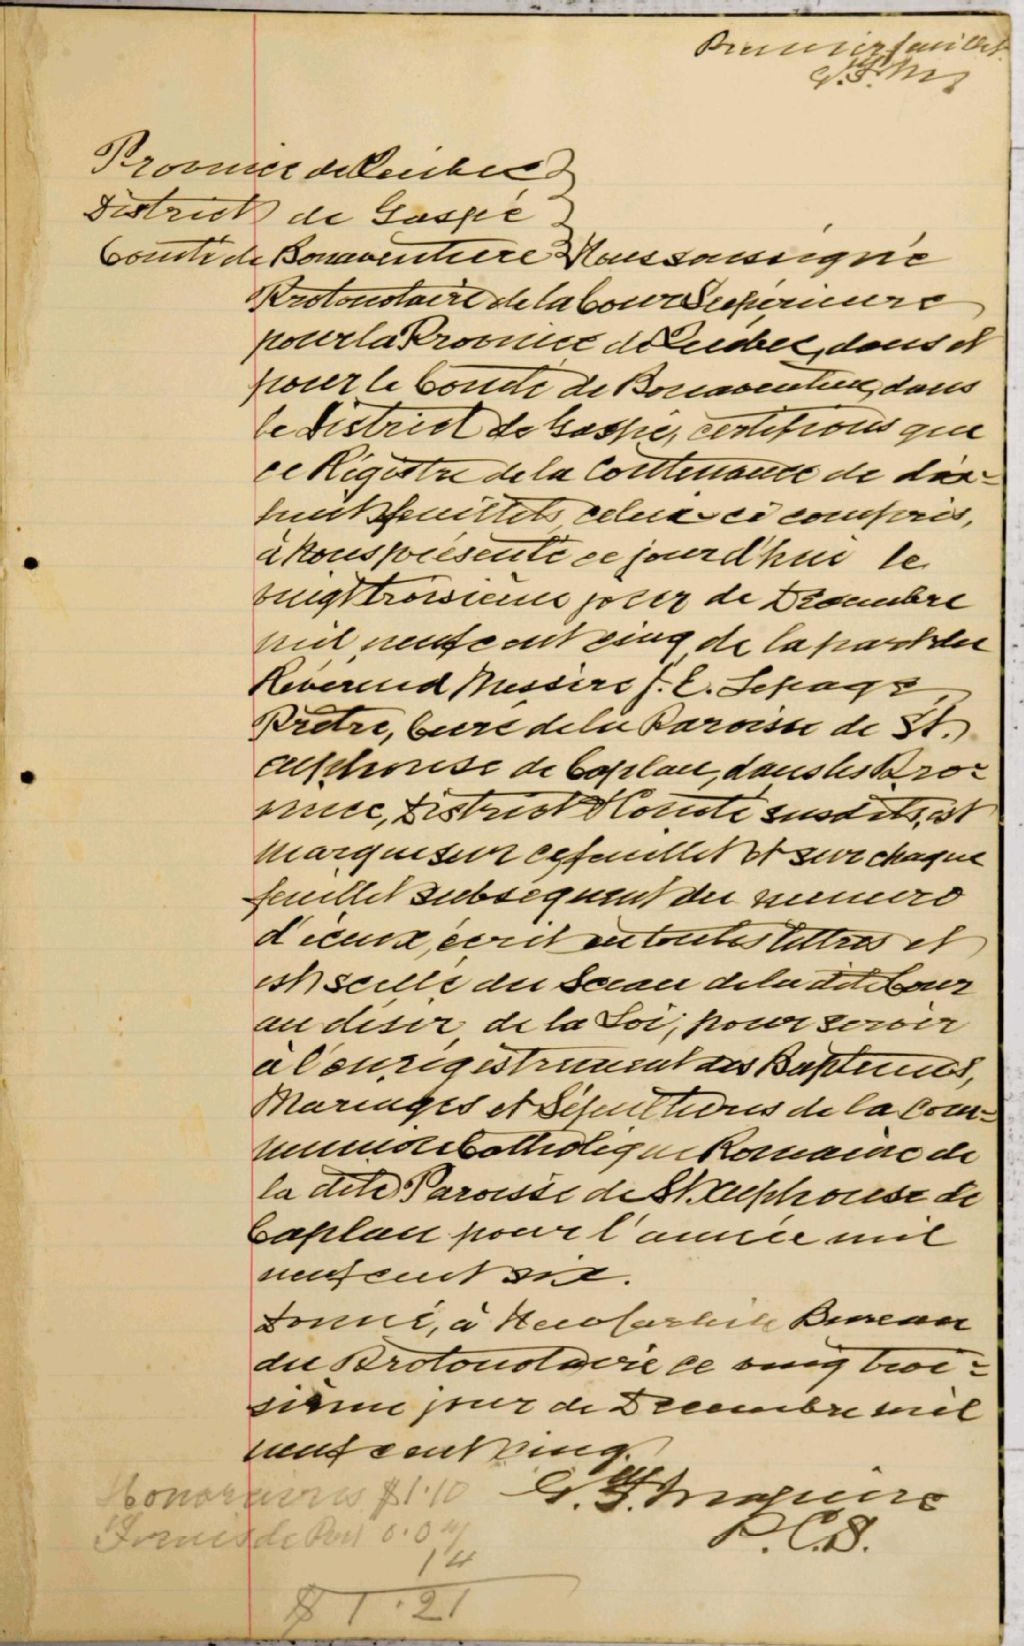 Premier feuillet
Province de Québec
District de Gaspé
Comté de Bonaventure Nous soussigné
Protonotaire de la Cour Supérieure
pour la Province de Québec, dans et
pour le Comté de Bonaventure, dans
le District de Gaspé, certifions que
ce Régistre de la Contenance de dix-
huit feuillets, celui-ci compris,
à Nous présenté ce jourd'hui le
vingt troisième jour de Décembre
mil neuf cent cinq, de la part du
Révérend Messire J. E. Lepage
Prêtre, Curé de la Paroisse de St.
Alphonse de Caplan, dans les Pro-
vince, District & Comté susdits, est
marqué sur ce feuillet et sur chaque
feuillet subséquent du numéro
d'iceux, écrit en toutes lettres et
est scellé du Sceau de la dite Cour
au désir de la Loi, pour servir
à l'enrégistrement des Baptemes,
Mariages et Sépultures de la Com-
munion Catholique Romaine de
la dite Paroisse de St. Alphonse de
Caplan pour l'année mil
neuf cent six.
Donné, à New Carlisle Bureau
du Protonotaire ce vingt troi-
sième jour de Decembre mil
neuf cent cinq.
Honoraires $1.10
P. C. S.
14
$ 1.21